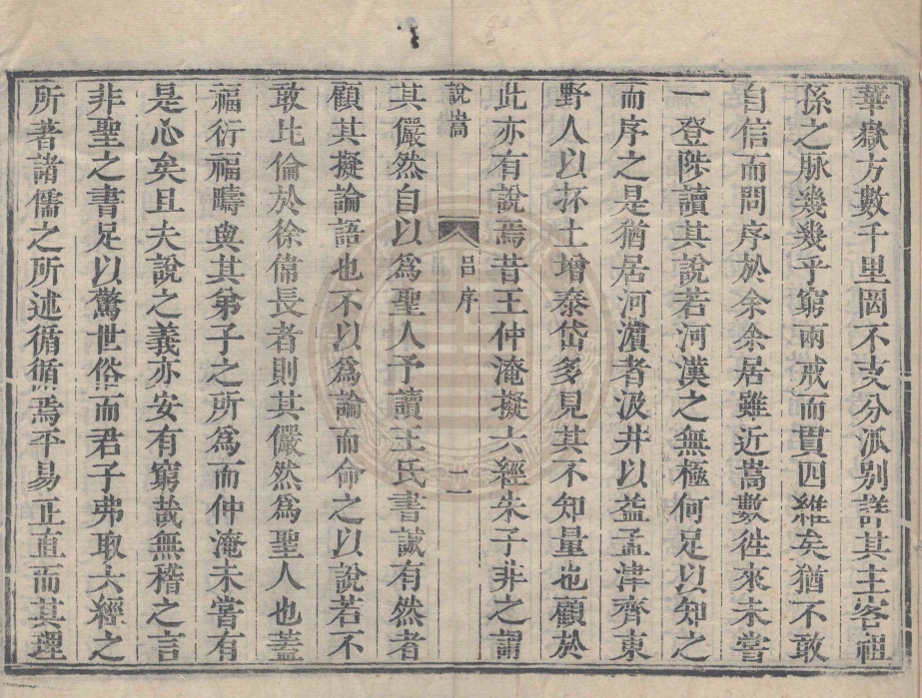 華嶽方數千里罔不支分派别詳其主客祖
孫之脉幾幾乎窮兩戒而貫四維矣猶不敢
自信而問序於余余居雖近嵩數徃來未嘗
一登陟讀其說若河漢之無極何足以知之
而序之是猶居河濵者汲井以益孟津齊東
野人以抔土增泰岱多見其不知量也顧於
此亦有說焉昔王仲淹擬六經朱子非之謂
說嵩
吕序
二
其儼然自以爲聖人予讀王氏書誠有然者
顧其擬論語也不以爲論而命之以說若不
敢比倫於徐偉長者則其儼然爲聖人也蓋
福衍福疇與其弟子之所爲而仲淹未嘗有
是心矣且夫說之義亦安有窮哉無稽之言
非聖之書足以驚世俗而君子弗取六經之
所著諸儒之所述循循焉平易正直而其理